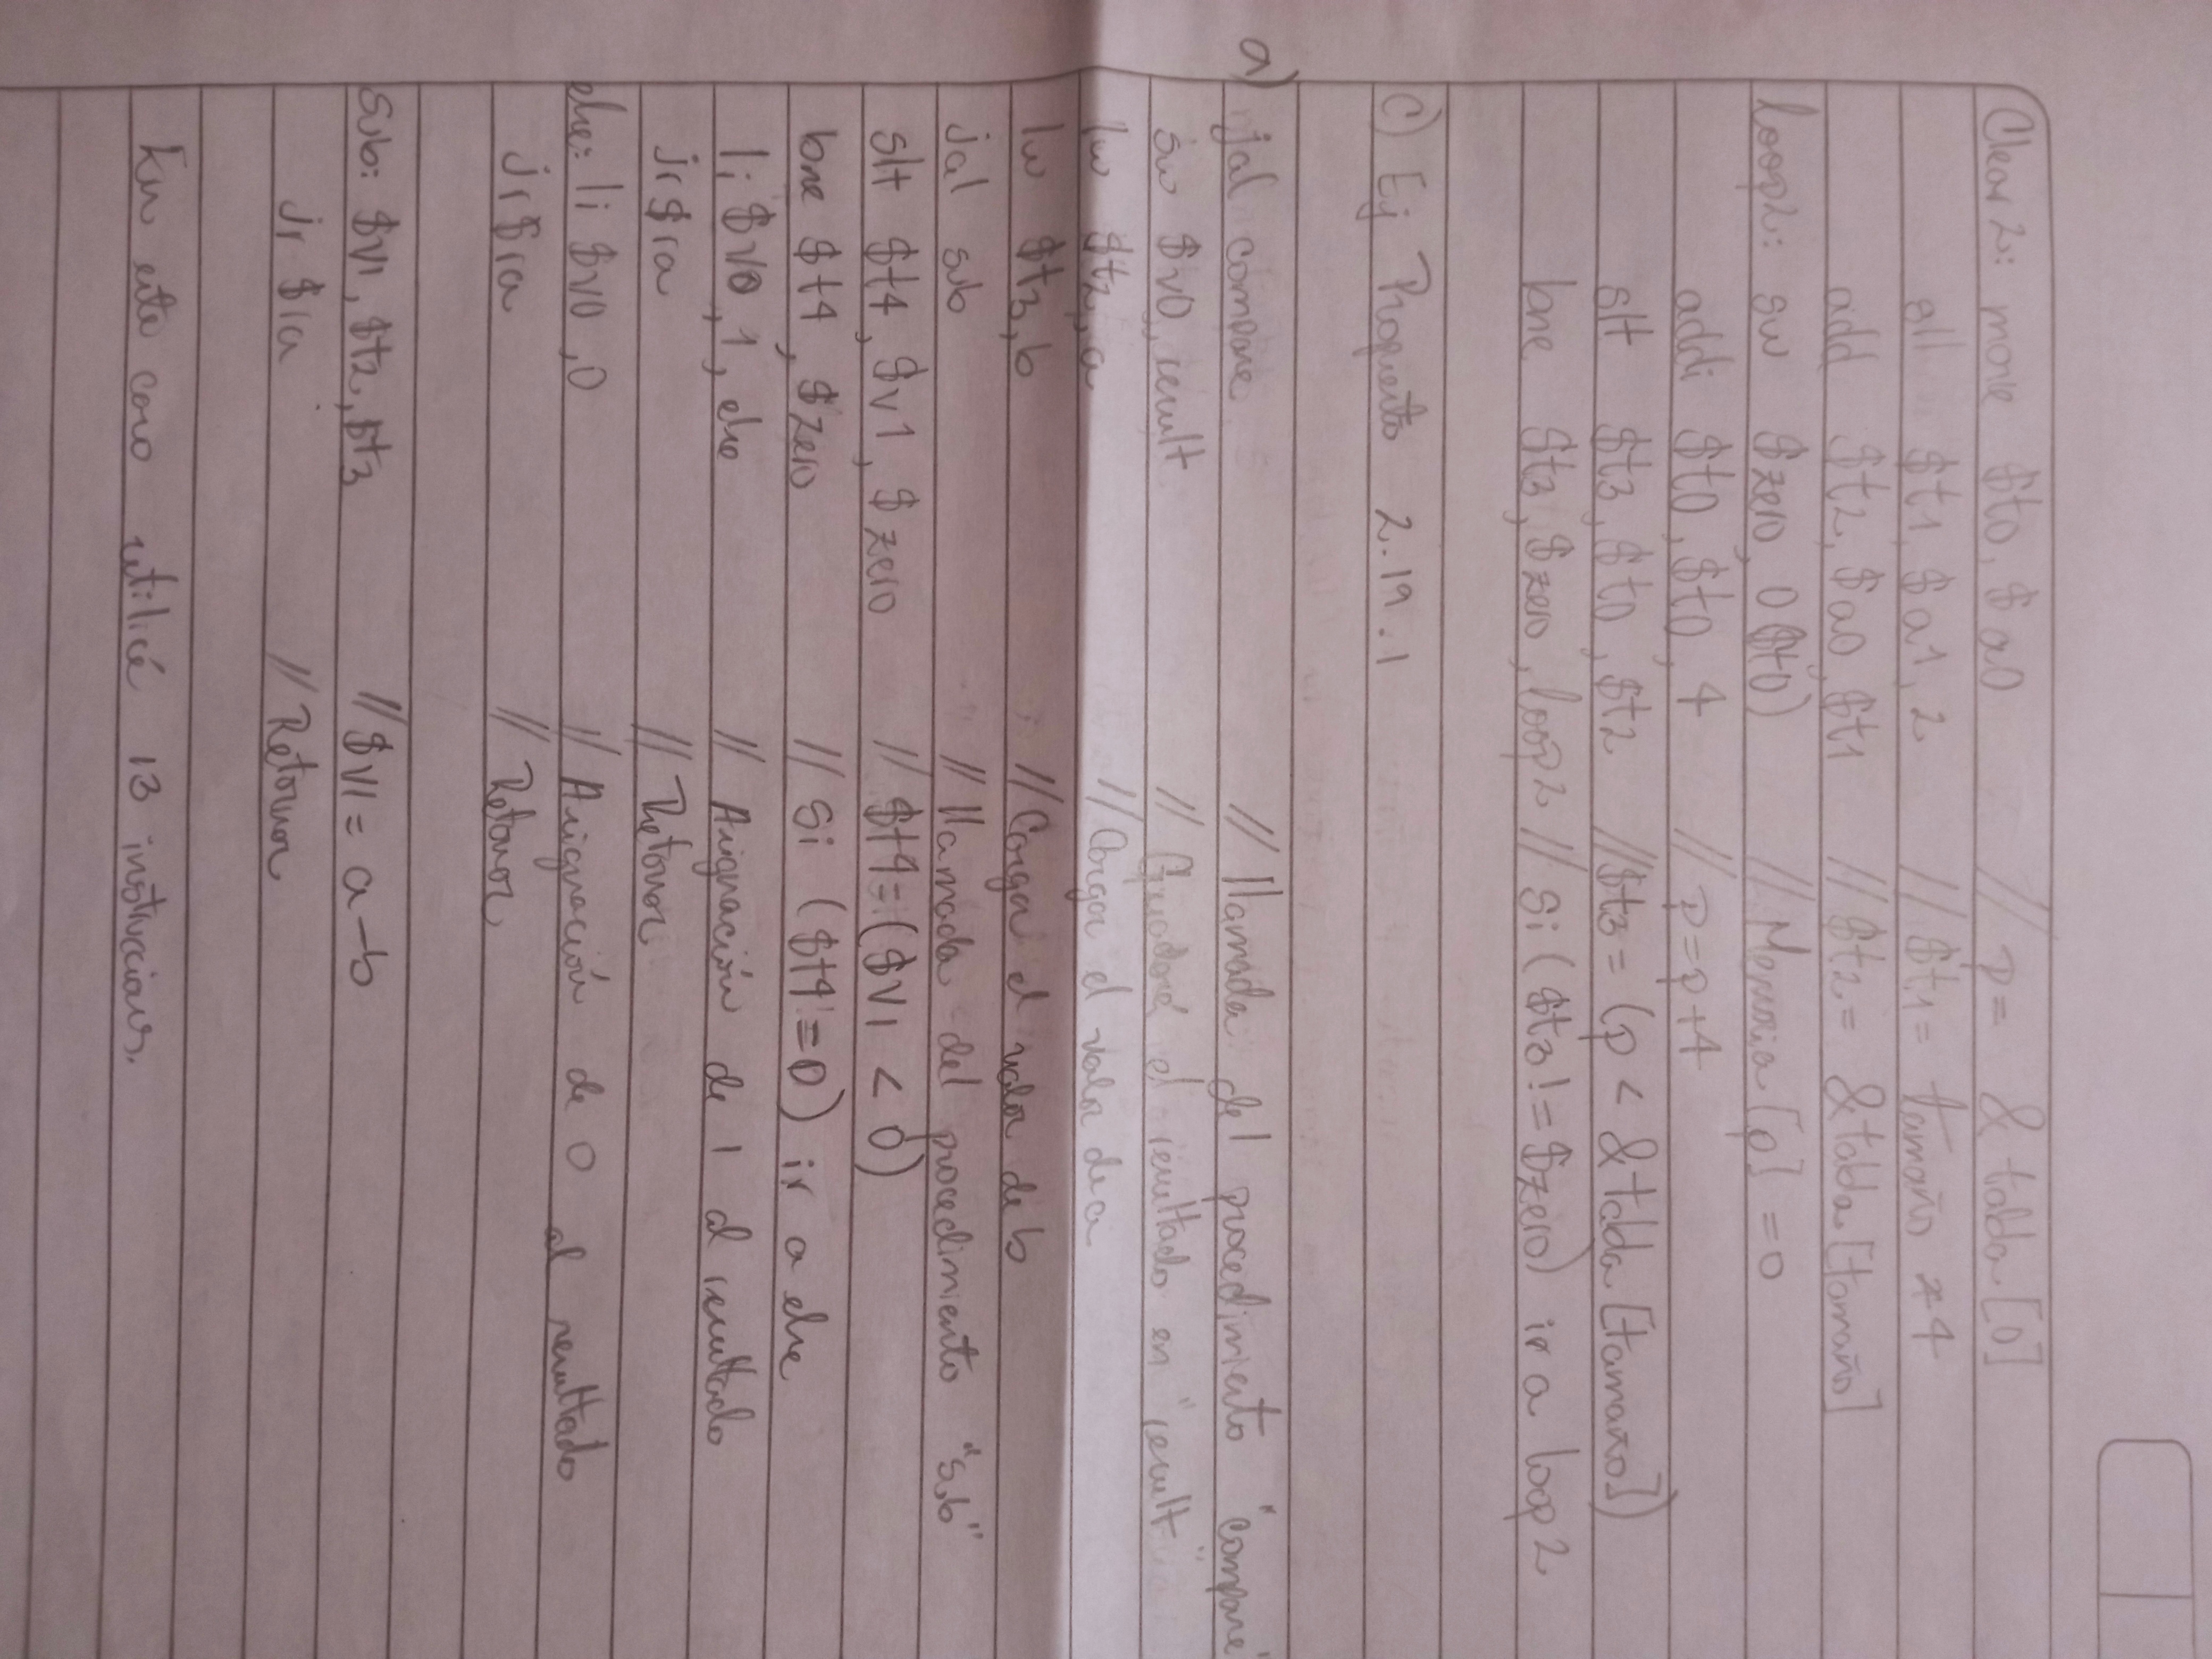 Clear2: move $t0, $a0 // p= & tabla [0]
sll $t1, $a1, 2 // $t1= tamaño *4
add $t2, $a0, $t1 // $t2= & tabla [tamaño]
loop2: sw $zero, 0($t0) // Memoria [p] =0
addi $t0, $t0, 4 // p=p+4
slt $t3, $t0, $t2 // $t3= (p < & tabla [tamaño])
bne $t3, $zero, loop2 // Si ($t3 != $zero) ir a loop2
C) Ej Propuesto 2.19.1
a) jal compare // llamada del procedimiento "compare"
sw $v0, result // Guardará el resultado en "result"
lw $t2, a // Cargar el valor de a
lw $t3, b // Cargar el valor de b
jal sub // llamada del procedimiento "sub"
slt $t4, $v1, $zero // $t4= ($v1 < 0)
bne $t4, $zero // Si ($t4 != 0) ir a else
li $v0, 1, else // Asignación de 1 al resultado
jr $ra // Retornar
else: li $v0, 0 // Asignación de 0 al resultado
jr $ra // Retornar
Sub: $v1, $t2, $t3 // $v1= a-b
jr $ra // Retornar
En este caso utilicé 13 instrucciones.